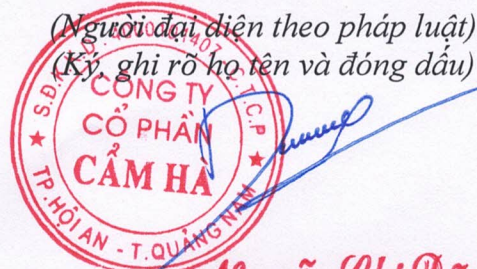 (Người đại diện theo pháp luật)
(Ký, ghi rõ họ tên và đóng dấu)
CÔNG TY
CỔ PHẦN
CẨM HÀ
TP.HỘI AN - T.QUẢNG NAM